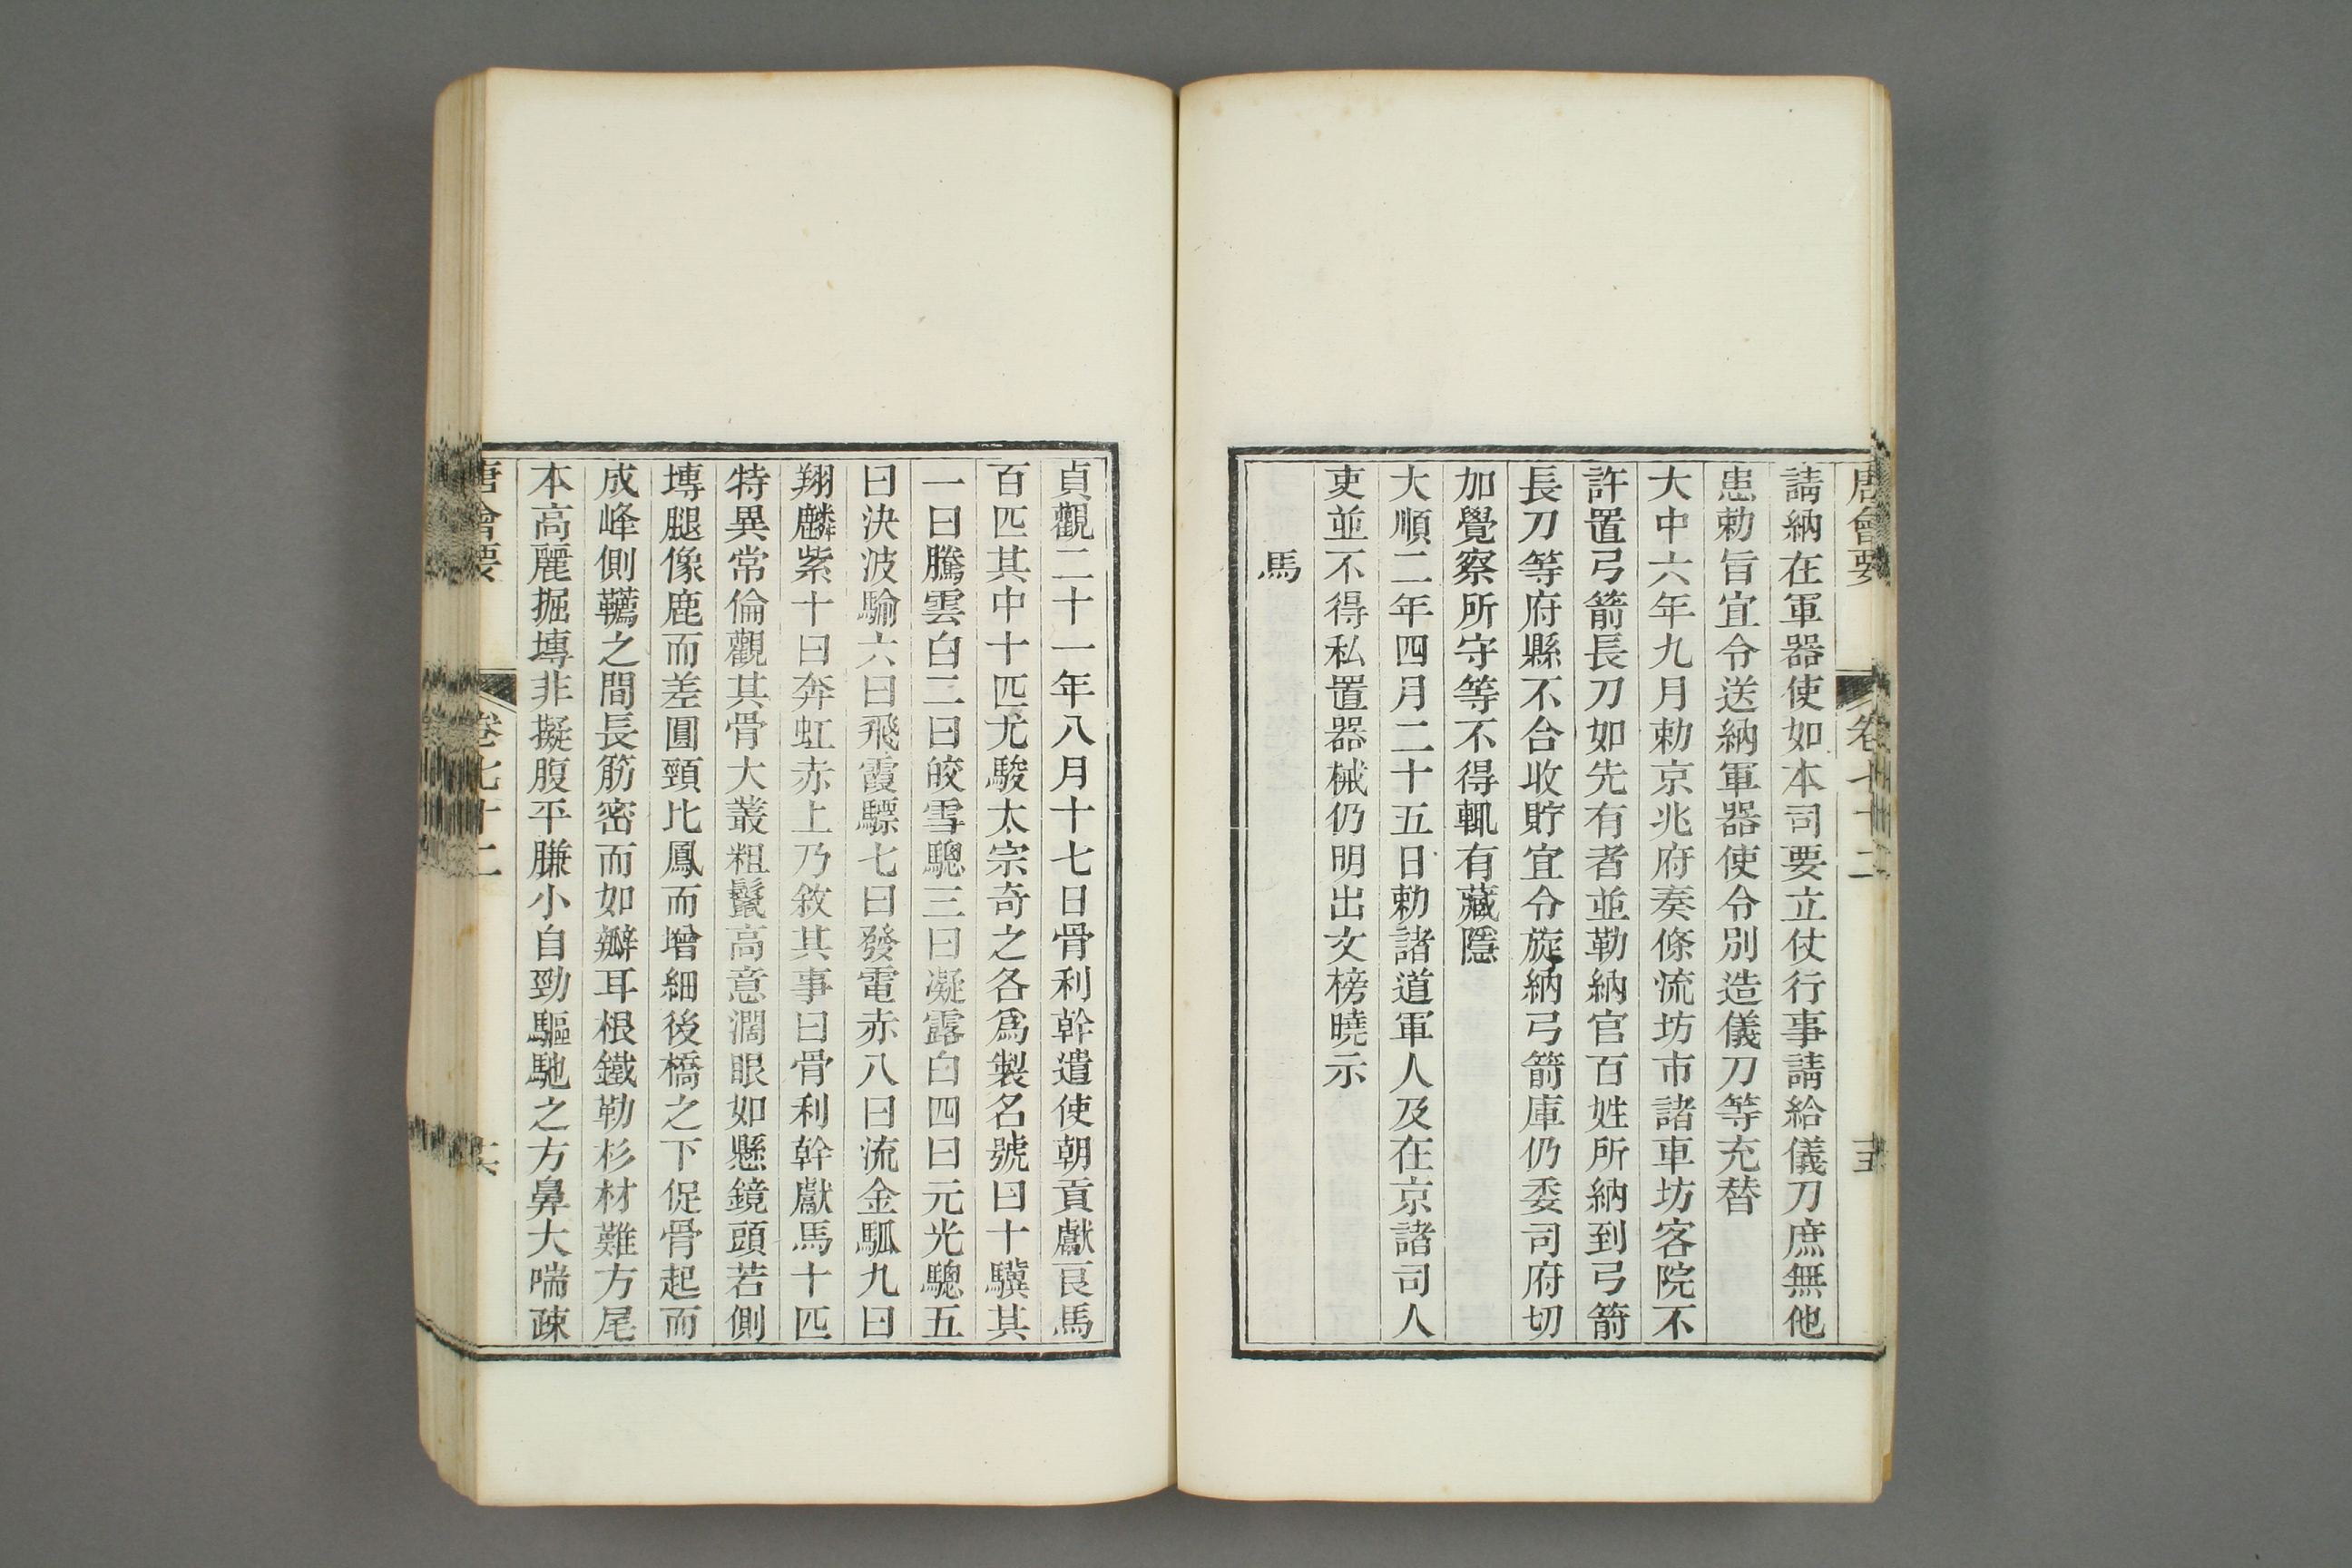 唐會要 卷七十二 十五
請納在軍器使如本司要立仗行事請給儀刀庶無他
患勅旨宜令送納軍器使令別造儀刀等充替
大中六年九月勅京兆府奏條流坊市諸車坊客院不
許置弓箭長刀如先有者並勒納官百姓所納到弓箭
長刀等府縣不合收貯宜令旋納弓箭庫仍委司府切
加覺察所守等不得輒有藏隱
大順二年四月二十五日勅諸道軍人及在京諸司人
吏並不得私置器械仍明出文榜曉示
馬
貞觀二十一年八月十七日骨利幹遣使朝貢獻良馬
百匹其中十匹尤駿太宗奇之各爲製名號曰十驥其
一曰騰雲白二曰皎雪驄三曰凝露白四曰元光驄五
曰決波騟六曰飛霞驃七曰發電赤八曰流金𩢍九曰
翔麟紫十曰奔虹赤上乃敘其事曰骨利幹獻馬十匹
特異常倫觀其骨大叢粗鬣高意濶眼如懸鏡頭若側
塼腿像鹿而差圓頸比鳳而增細後橋之下促骨起而
成峰側韉之間長筋密而如瓣耳根鐵勒杉材難方尾
本高麗掘塼非擬腹平膁小自勁驅馳之方鼻大喘疎
唐會要 卷七十二